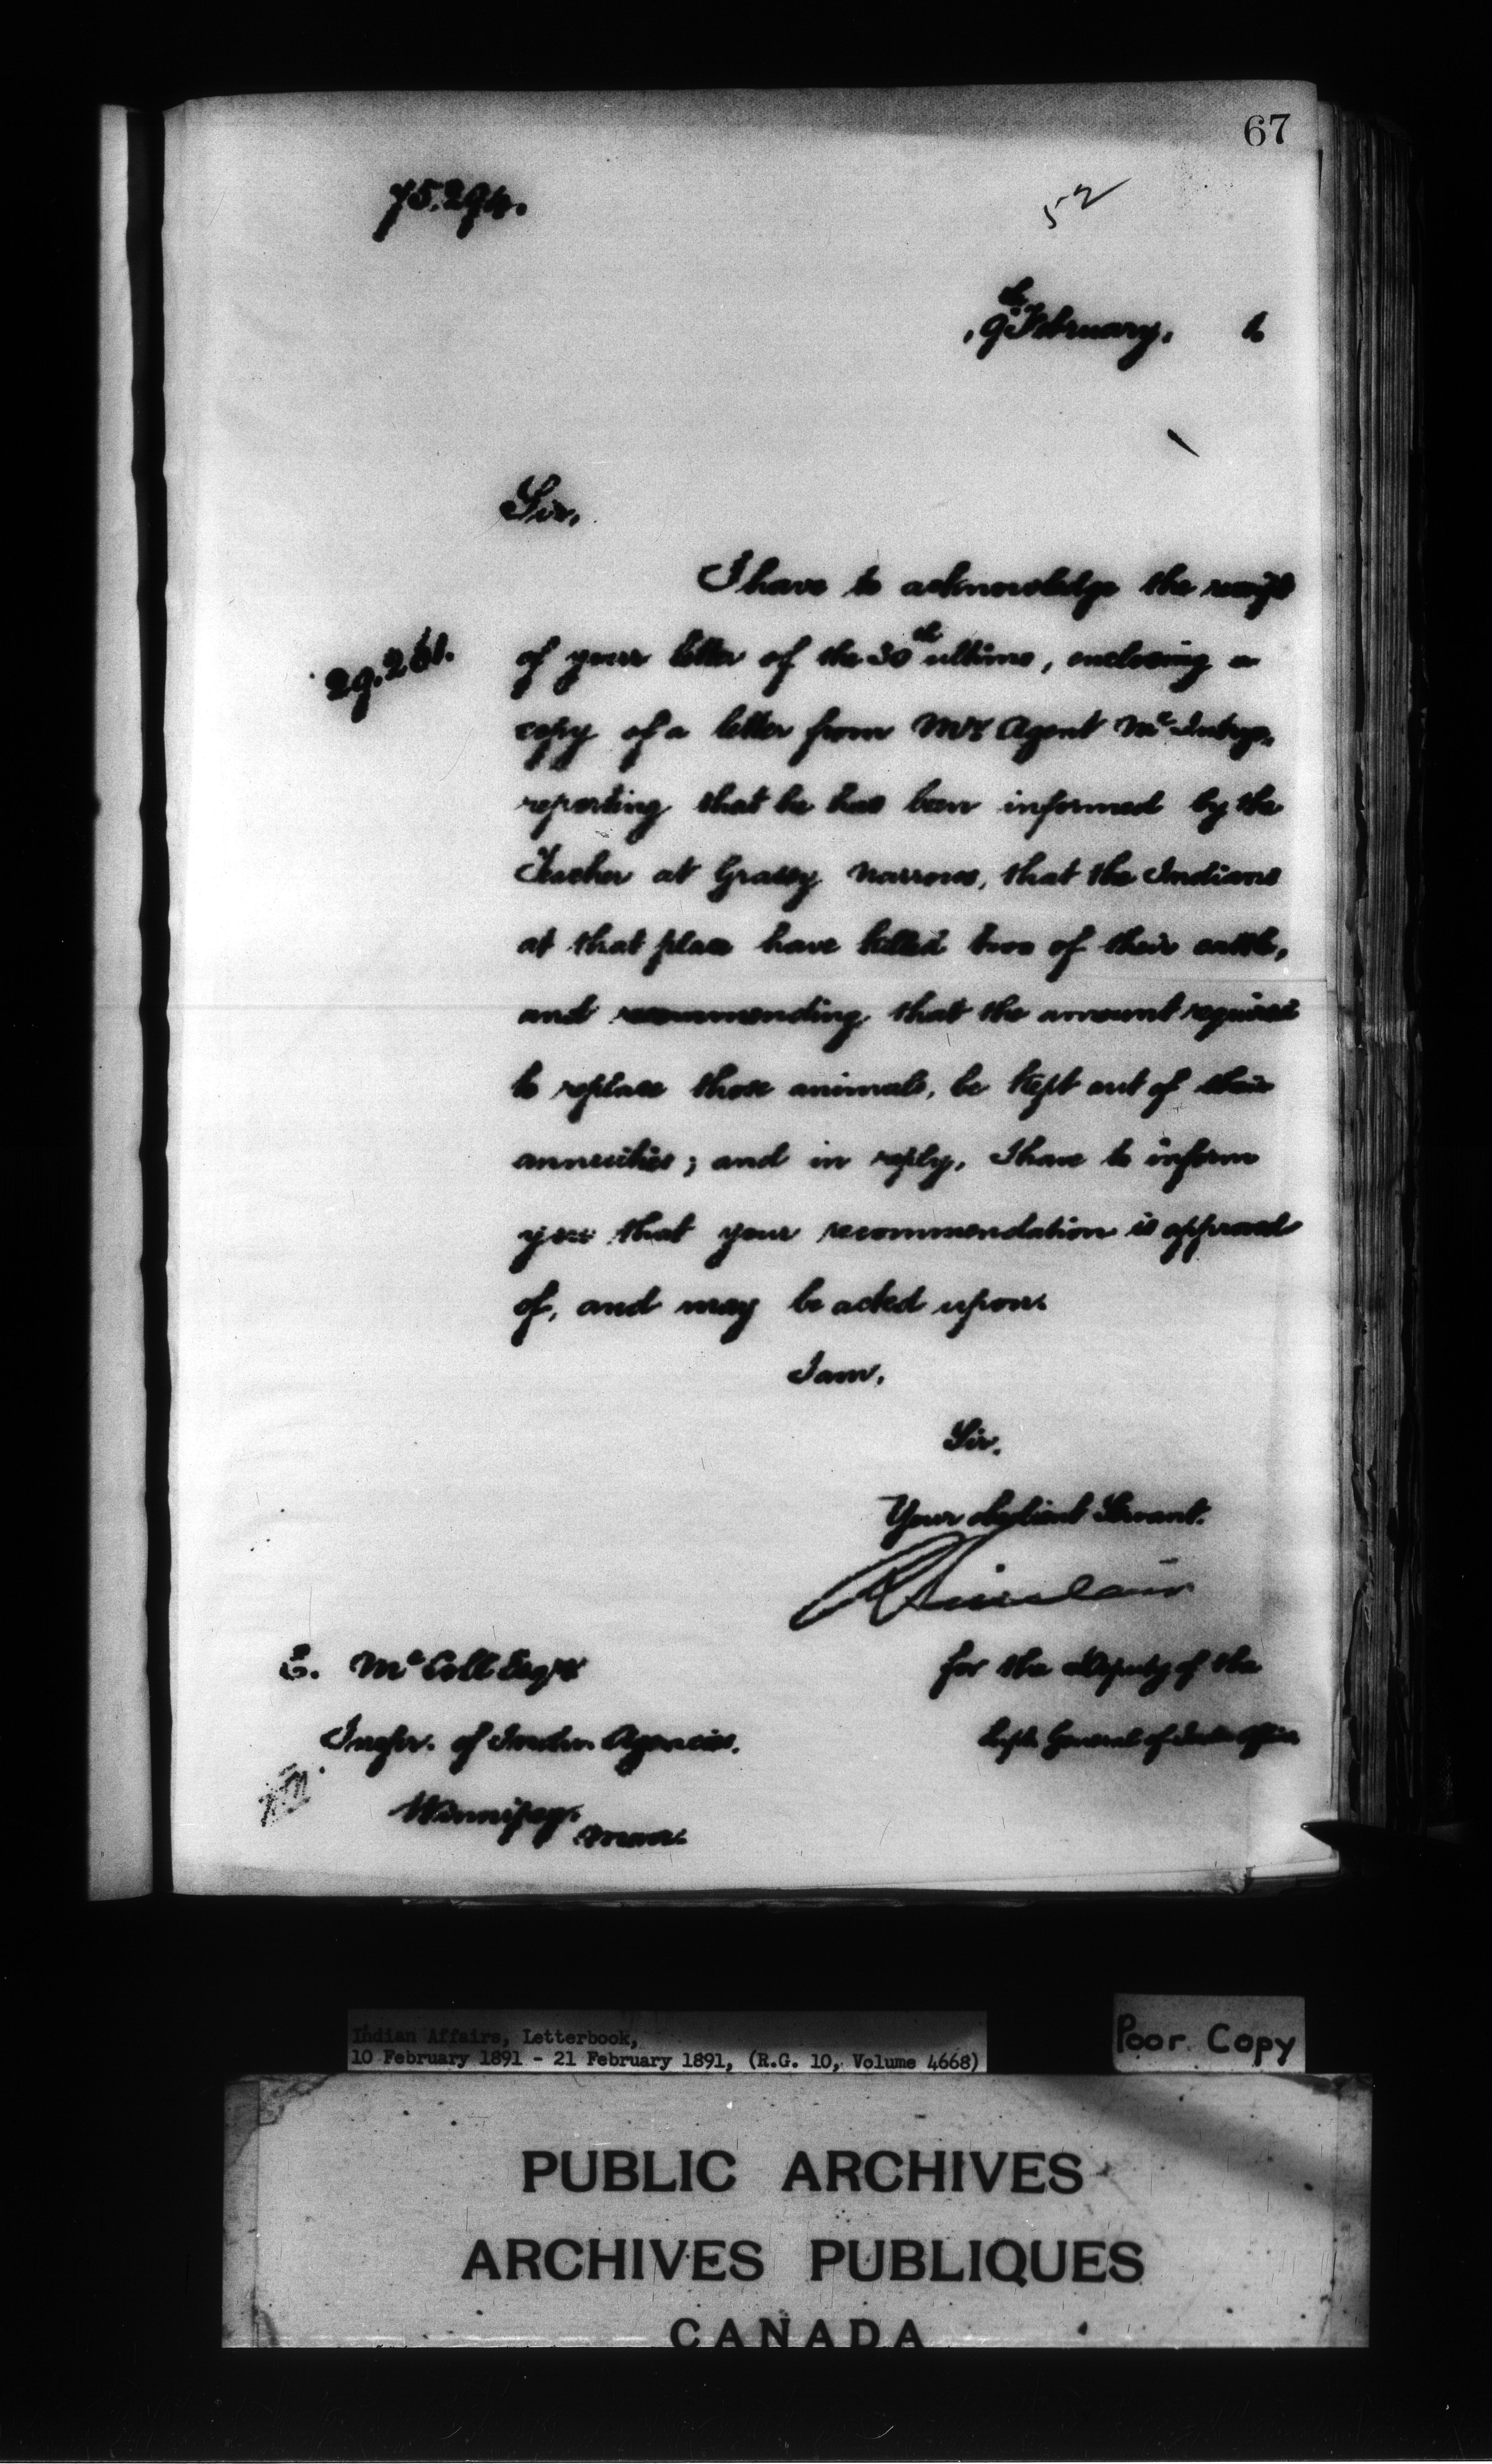 67
75.294.
52
9th February, 1
Sir,
I have to acknowledge the receipt
29.261.
of your letter of the 30th ultimo, enclosing a
copy of a letter from Mr. Agent McIntyre,
reporting that he has been informed by the
Teacher at Grassy Narrows, that the Indians
at that place have killed two of their cattle,
and recommending that the amount required
to replace those animals, be kept out of their
annuities; and in reply, I have to inform
you that your recommendation is approved
of, and may be acted upon.
I am,
Sir,
Your obedient Servant.
Sinclair
E. McColl Esqre
for the Deputy of the
Inspr. of Indian Agencies.
Supt. General of Indn Affairs
Winnipeg.
Man.
Indian Affairs, Letterbook,
10 February 1891 - 21 February 1891, (R.G. 10, Volume 4668)
Poor Copy
PUBLIC ARCHIVES
ARCHIVES PUBLIQUES
CANADA